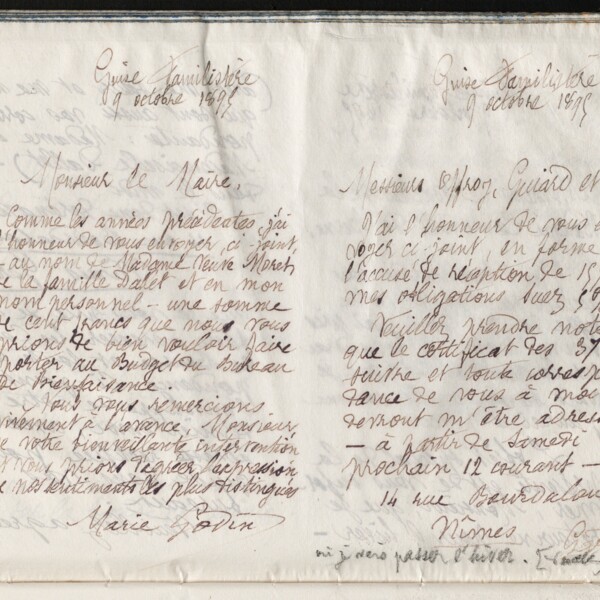 Guise Familistère
9 octobre 1895
Monsieur le Maire,
Comme les années précédentes, j'ai
l'honneur de vous envoyer, ci-joint
- au nom de Madame Veuve Moret
de la famille Dallet et en mon
nom personnel - une somme
de cent francs que nous vous
prions de bien vouloir faire
porter au Budget du Bureau
de Bienfaisance.
Nous vous remercions
vivement à l'avance, Monsieur
de votre bienveillante intervention
et vous prions d'agréer l'expression
de nos sentiments les plus distingués
Marie Godin
Guise Familistère
9 octobre 1895
Messieurs Offroy, Guiard et
J'ai l'honneur de vous
voyer ci-joint, en forme
l'accusé de réception de 15
mes obligations Suez 5%
Veuillez prendre note
que le certificat des 37
suivre et toute corresp
dance de vous à moi
devront m'être adres
- à partir de Samedi
prochain 12 courant -
14 rue Bourdalou
Nîmes
où je vais passer l'hiver.